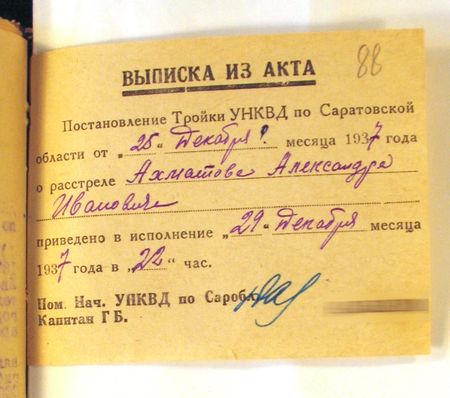 88
ВЫПИСКА ИЗ АКТА
Постановление Тройки УНКВД по Саратовской
области от „25“ Декабря месяца 1937 года
о расстреле Ахматова Александра
Ивановича
приведено в исполнение „29“ Декабря месяца
1937 года в „22“ час.
Пом. Нач. УНКВД по Сароб.
Капитан Г.Б.